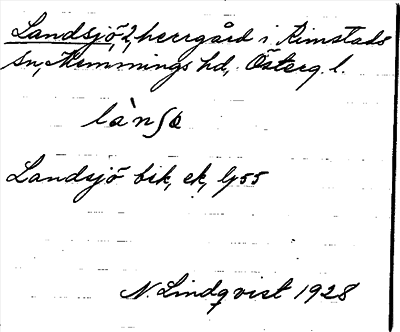 Landsjö, 2, herrgård i Rimstads
sn, Memmings hd, Österg. l.
là`nʃɷ
Landsjö bik, ek, lj 55
N. Lindqvist 1928